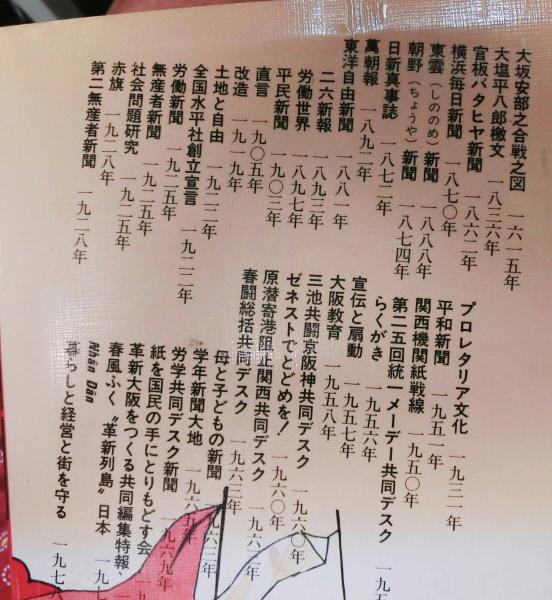 大坂安部之合戦之図 一六一五年
大塩平八郎檄文 一八三六年
官板バタヒヤ新聞 一八六二年
横浜毎日新聞 一八七〇年
東雲(しののめ)新聞 一八八八年
朝野(ちょうや)新聞 一八七四年
日新真事誌 一八七二年
萬朝報 一八九二年
東洋自由新聞 一八八一年
二六新報 一八九三年
労働世界 一八九七年
平民新聞 一九〇三年
直言 一九〇五年
改造 一九一九年
土地と自由 一九二二年
全国水平社創立宣言 一九二二年
労働新聞 一九二五年
無産者新聞 一九二五年
社会問題研究 一九二五年
赤旗 一九二八年
第二無産者新聞 一九二八年
プロレタリア文化 一九三一年
平和新聞 一九五一年
関西機関紙戦線 一九五〇年
第二五回統一メーデー共同デスク 一九五
らくがき 一九五六年
宣伝と扇動 一九五七年
大阪教育 一九五八年
三池共闘京阪神共同デスク 一九六〇年
ゼネストでとどめを! 一九六〇年
原潜寄港阻止関西共同デスク 一九六三年
春闘総括共同デスク 一九六三年
母と子どもの新聞 一九六三年
学年新聞大地 一九六五年
労学共同デスク新聞 一九六九年
紙を国民の手にとりもどす会
革新大阪をつくる共同編集特報、一九
春風ふく“革新列島”日本 一九七
Nhân Dân
暮らしと経営と街を守る 一九七